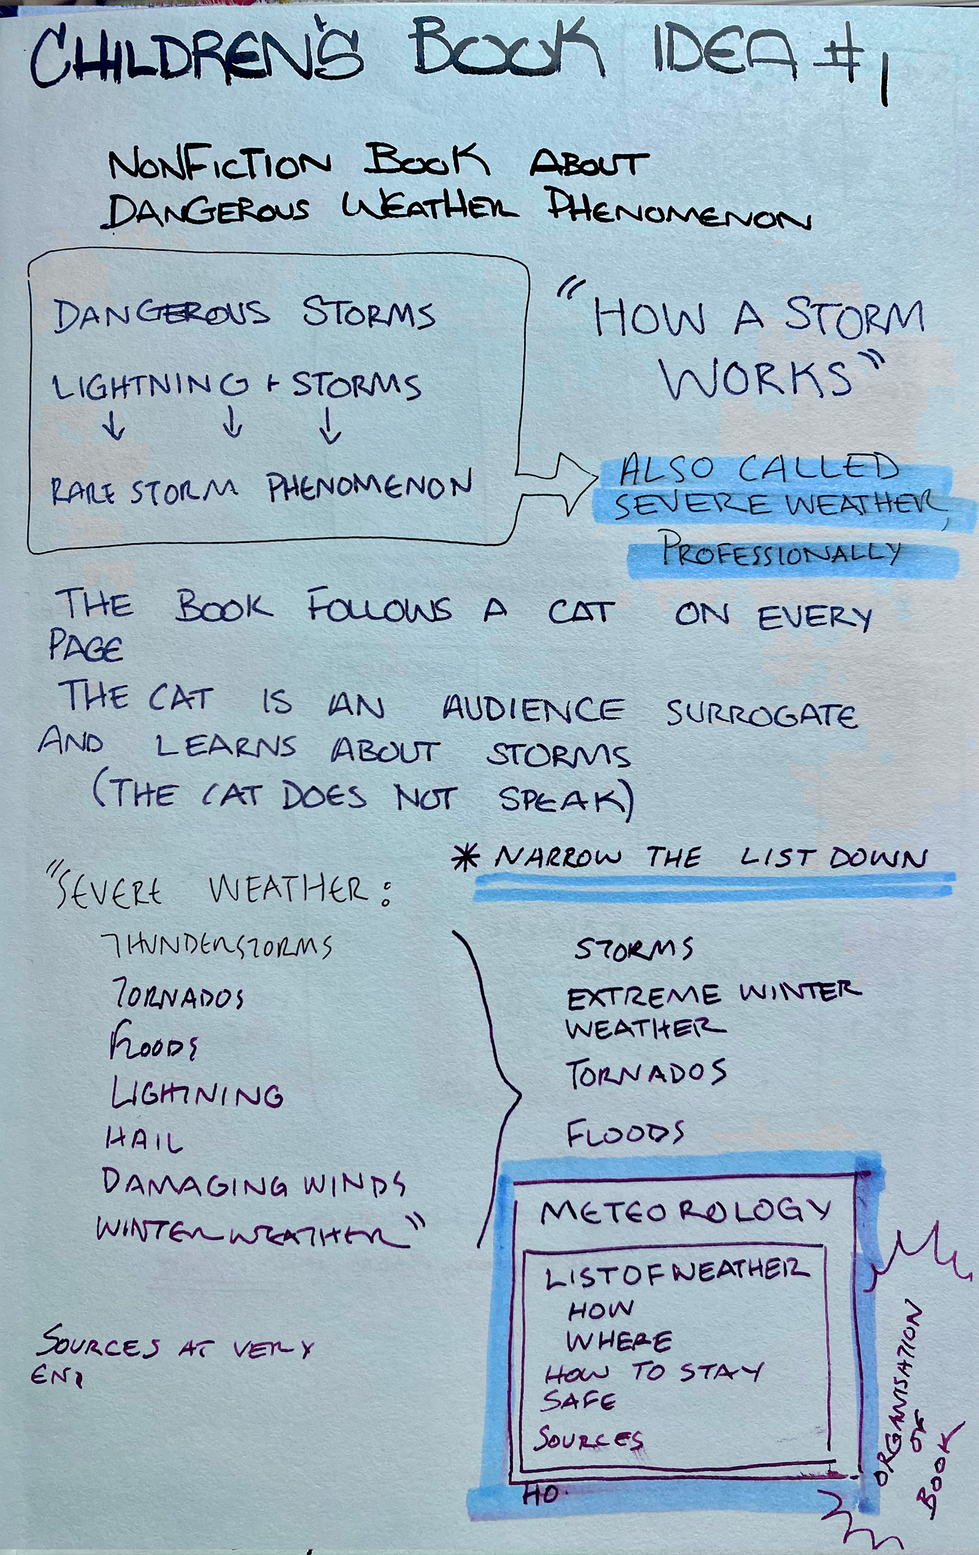 CHILDREN'S BOOK IDEA #1
NONFICTION BOOK ABOUT
DANGEROUS WEATHER PHENOMENON
DANGEROUS STORMS
LIGHTNING + STORMS
↓ ↓ ↓
RARE STORM PHENOMENON
"HOW A STORM
WORKS"
ALSO CALLED
SEVERE WEATHER,
PROFESSIONALLY
THE BOOK FOLLOWS A CAT ON EVERY
PAGE
THE CAT IS AN AUDIENCE SURROGATE
AND LEARNS ABOUT STORMS
(THE CAT DOES NOT SPEAK)
* NARROW THE LIST DOWN
"SEVERE WEATHER:
THUNDERSTORMS
TORNADOS
FLOODS
LIGHTNING
HAIL
DAMAGING WINDS
WINTER WEATHER"
STORMS
EXTREME WINTER
WEATHER
TORNADOS
FLOODS
METEOROLOGY
LIST OF WEATHER
HOW
WHERE
HOW TO STAY
SAFE
SOURCES
HO.
ORGANISATION
OF
BOOK
SOURCES AT VERY
END